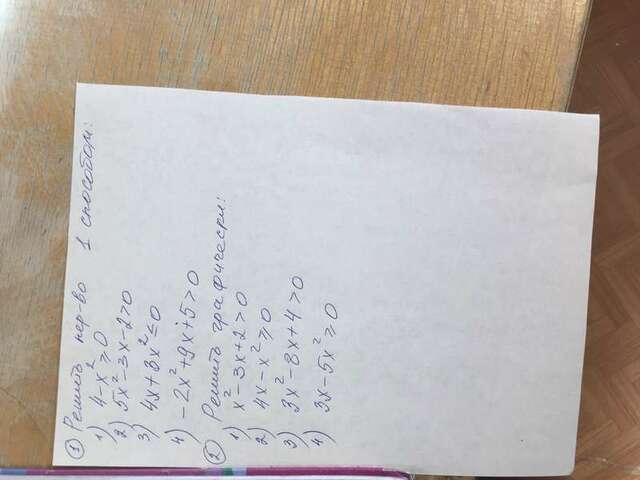 ① Решить нер-во 1 способом:
1) 4-x²≥0
2) 5x²-3x-2>0
3) 4x+3x²≤0
4) -2x²+9x+5>0
② Решить графически:
1) x²-3x+2>0
2) 4x-x²≥0
3) 3x²-8x+4>0
4) 3x-5x²≥0